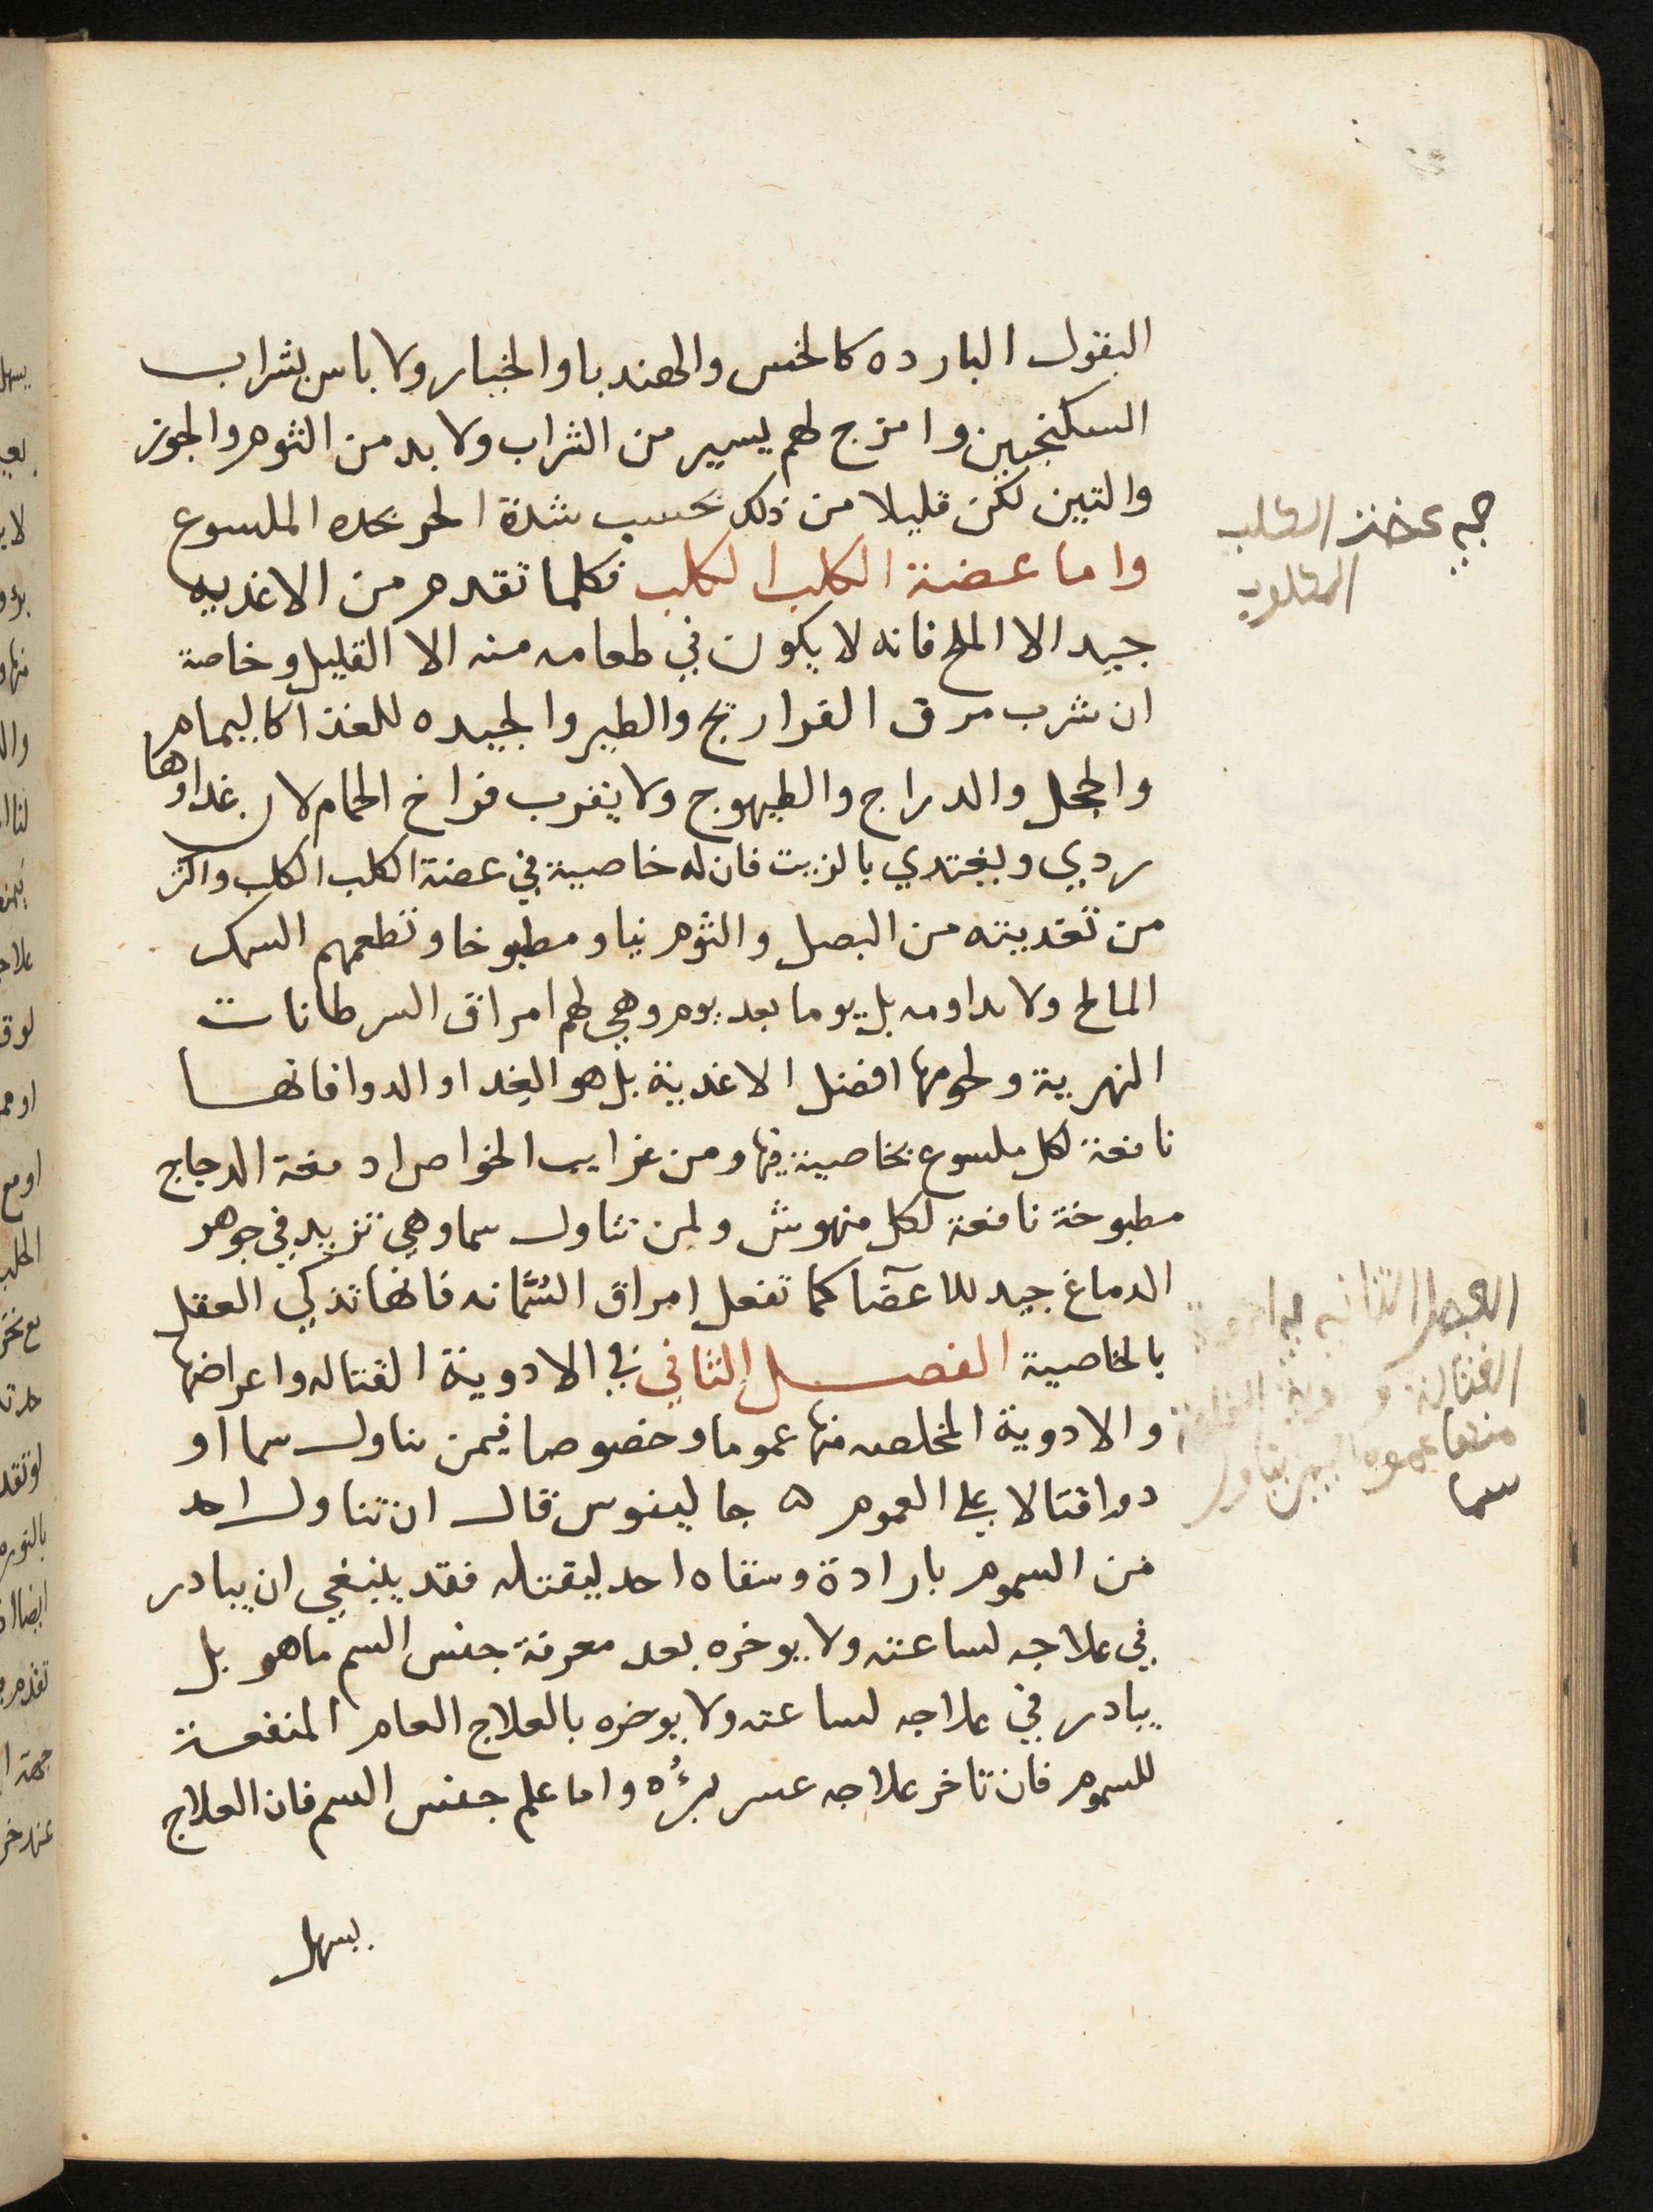 البقول البارده كالخس والهندبا والخيار ولا باس بشراب
السكنجبين وامزج لهم يسير من الشراب ولا بد من الثوم والجوز
والتين لكن قليلا من ذلك بحسب شدة الحر يجده الملسوع
واما عضة الكلب الكلب فكلما تقدم من الاغديه
جيد الا الملح فانه لا يكون في طعامه منه الا القليل وخاصة
ان شرب مرق الفراريج والطير والجيده للغذآ كاليمام
والحجل والدراج والطيهوج ولا يقرب فراخ الحمام لان غداوها
ردي ويغتدي بالزيت فان له خاصية في عضة الكلب الكلب واكثر
من تغديته من البصل والثوم نيا ومطبوخا وتطعمهم السمك
المالح ولا يداومه بل يوما بعد يوم وهي لهم امراق السرطانات
النهرية ولحومها افضل الاغدية بل هو الغدا والدوا فانها
نافعة لكل ملسوع بخاصية فيها ومن غرايب الخواص ادمغة الدجاج
مطبوخة نافعة لكل منهوش ولمن تناول سما وهي تزيد في جوهر
الدماغ جيد للاعضآ كما تفعل امراق السُّمانه فانها تذكي العقل
بالخاصية الفصل الثاني في الادوية القتاله واعراضها
والادوية المخلصه منها عموما وخصوصا فيمن تناول سما او
دوا قتالا على العموم ه جالينوس قال ان تناول احد
من السموم بارادة وسقاه احد ليقتله فقد ينبغي ان يبادر
في علاجه لساعته ولا يوخره بعد معرفة جنس السم ما هو بل
يبادر في علاجه لساعته ولا يوخره بالعلاج العام المنفعة
للسموم فان تاخر علاجه عسر برؤه واما علم جنس السم فان العلاج
يسهل
في عضة الكلب
المكلوب
الفصل الثاني في
القتالة
منها عموما فيمن تناول
سما